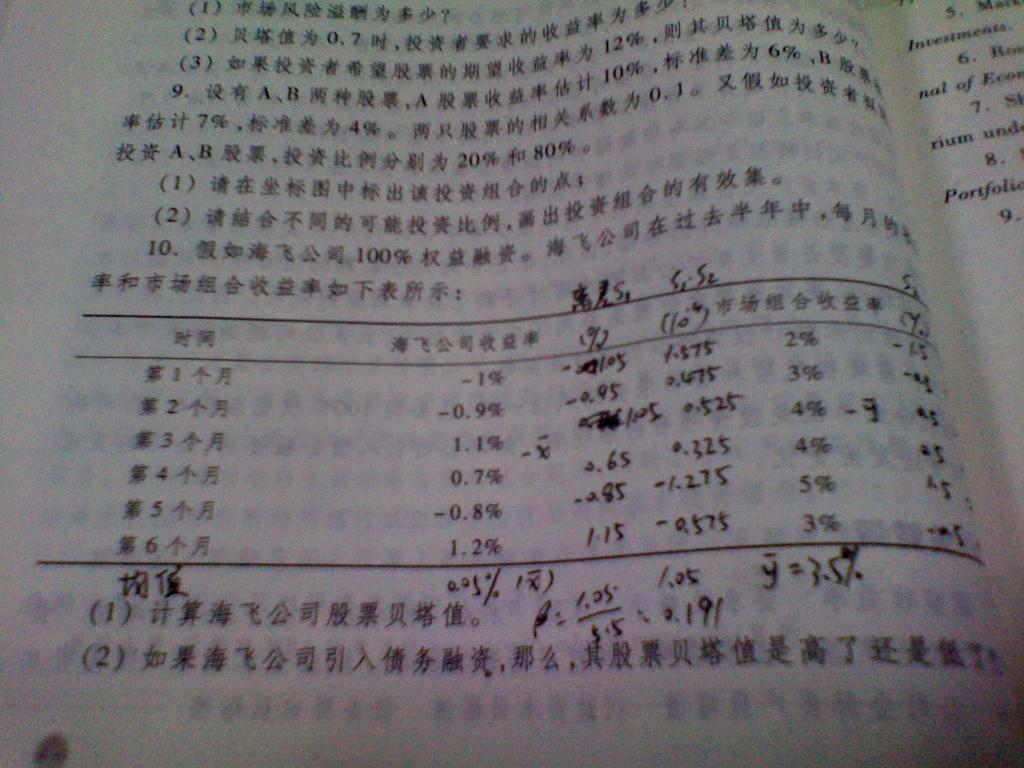 (1) 市场风险溢酬为多少?
(2) 贝塔值为 0.7 时,投资者要求的收益率为多少?
(3) 如果投资者希望股票的期望收益率为 12%,则其贝塔值为多少?
9. 设有 A、B 两种股票,A 股票收益率估计 10%,标准差为 6%,B 股票
率估计 7%,标准差为 4%。两只股票的相关系数为 0.1。又假如投资者
投资 A、B 股票,投资比例分别为 20% 和 80%。
(1) 请在坐标图中标出该投资组合的点;
(2) 请结合不同的可能投资比例,画出投资组合的有效集。
10. 假如海飞公司 100% 权益融资。海飞公司在过去半年中,每月的
率和市场组合收益率如下表所示:
离差S₁ S₁·S₂ S₂
时间 海飞公司收益率 (%) 市场组合收益率
第 1 个月 -1% 1.575 2% -1.5
第 2 个月 -0.9% -0.95 0.475 3% -0.5
第 3 个月 1.1% -x̄ 1.05 0.525 4% -ȳ 0.5
第 4 个月 0.7% 0.65 0.325 4% 0.5
第 5 个月 -0.8% -0.85 -1.275 5% 1.5
第 6 个月 1.2% 1.15 -0.575 3% -0.5
均值 0.05% (x̄) 1.05 ȳ=3.5%
(1) 计算海飞公司股票贝塔值。 β= 1.05/5.5 = 0.191
(2) 如果海飞公司引入债务融资,那么,其股票贝塔值是高了还是低了
5. Mark
Investments.
6.
nal of Econ
7. Sh
rium unde
8.
Portfolio
9.